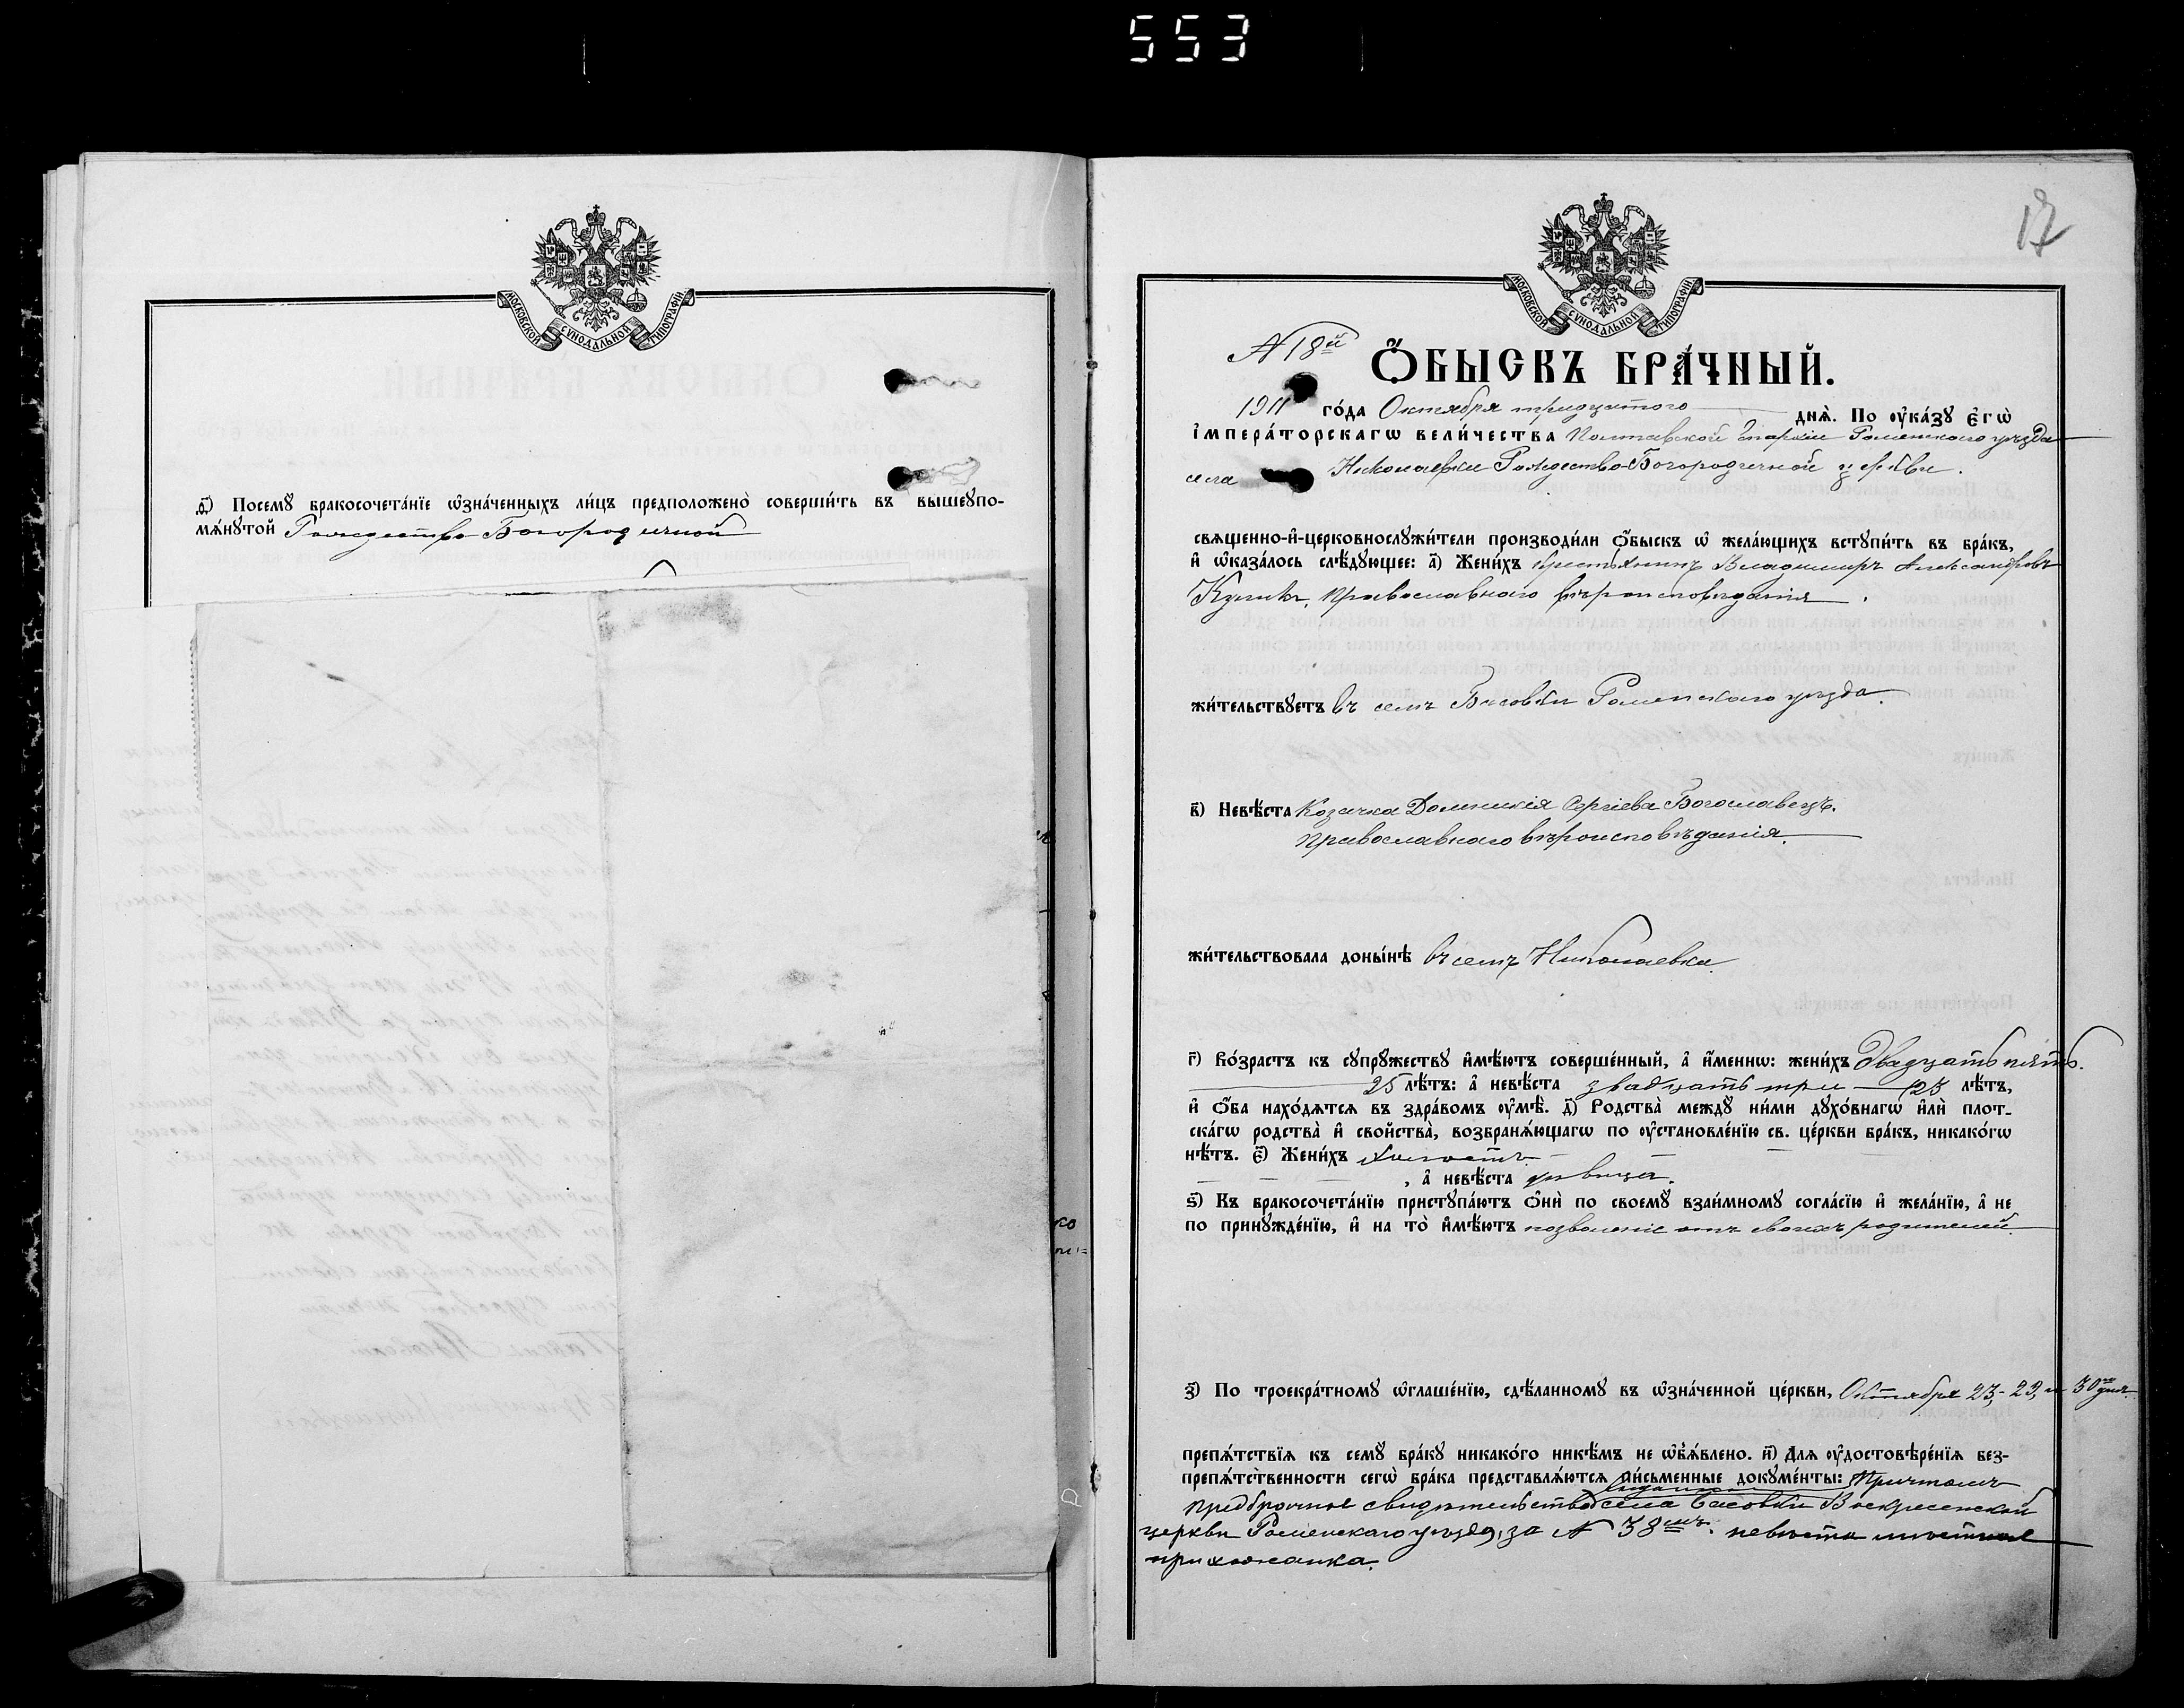 553
МОСКОВСКОЙ СѴНОДАЛЬНОЙ ТИПОГРАФІИ
д҃) Посемꙋ бракосочета́нїе ѡ҆зна́ченныхъ ли́цъ предположено̀ соверши́ть въ вышеꙋпо-
мѧ́нꙋтой Рождество Богородичной
17
МОСКОВСКОЙ СѴНОДАЛЬНОЙ ТИПОГРАФІИ
N 18й
Ѻ҆́БЫСКЪ БРА́ЧНЫЙ.
1911 го́да Октября тридцатого днѧ̀. По ᲂу҆ка́зꙋ є҆гѡ̀
і҆мпера́торскагѡ вели́чества Полтавской Епархіи Роменскаго уѣзда
села Николаевки Рождество-Богородичной церкви.
свѧщенно-и҆-церковнослꙋжи́тели производи́ли ѻ҆́быскъ ѡ҆ жела́ющихъ встꙋпи́ть въ бра́къ,
и҆ ѡ҆каза́лось слѣ́дꙋющее: а҃) Жени́хъ крестьянинъ Владимиръ Александровъ
Куликъ, Православнаго вѣроисповѣданія.
жи́тельствꙋетъ въ селѣ Басовки Роменскаго уѣзда.
в҃) Невѣ́ста Козачка Домникія Сергіева Богославецъ.
Православнаго вѣроисповѣданія.
жи́тельствовала доны́нѣ въ селѣ Николаевка.
г҃) Во́зрастъ къ сꙋпрꙋ́жествꙋ и҆мѣ́ютъ соверше́нный, а҆ и҆́меннѡ: жени́хъ Двадцать пять.
25 лѣ́тъ: а҆ невѣ́ста двадцать три 23 лѣ́тъ,
и҆ ѻ҆́ба нахо́дѧтсѧ въ здра́вомъ ᲂу҆мѣ̀. д҃) Родства̀ междꙋ̀ ни́ми дꙋхо́внагѡ и҆лѝ плот-
ска́гѡ родства̀ и҆ свойства̀, возбранѧ́ющагѡ по ᲂу҆становле́нїю св. це́ркви бра́къ, никако́гѡ
нѣ́тъ. є҃) Жени́хъ холостъ
, а҆ невѣ́ста дѣвица.
ѕ҃) Къ бракосочета́нїю пристꙋпа́ютъ ѻ҆нѝ по своемꙋ̀ взаи́мномꙋ согла́сїю и҆ жела́нїю, а҆ не
по принꙋжде́нїю, и҆ на то̀ и҆мѣ́ютъ позволеніе отъ своихъ родителей.
з҃) По троекра́тномꙋ ѡ҆глаше́нїю, сдѣ́ланномꙋ въ ѡ҆зна́ченной це́ркви, Октября 23,- 29, и 30го дня.
препѧ́тствїѧ къ семꙋ̀ бра́кꙋ никако́го никѣ́мъ не ѡ҆б̾ѧ́влено. и҃) Длѧ ᲂу҆достовѣре́нїѧ без-
препѧ́тственности сегѡ̀ бра́ка представлѧ́ютсѧ пи́сьменные докꙋме́нты: Причтомъ
предбрачное свидѣтельство села Басовки Воскресенской
церкви Роменскаго уѣзда, за N 38мъ. невѣста мѣстная
прихожанка.